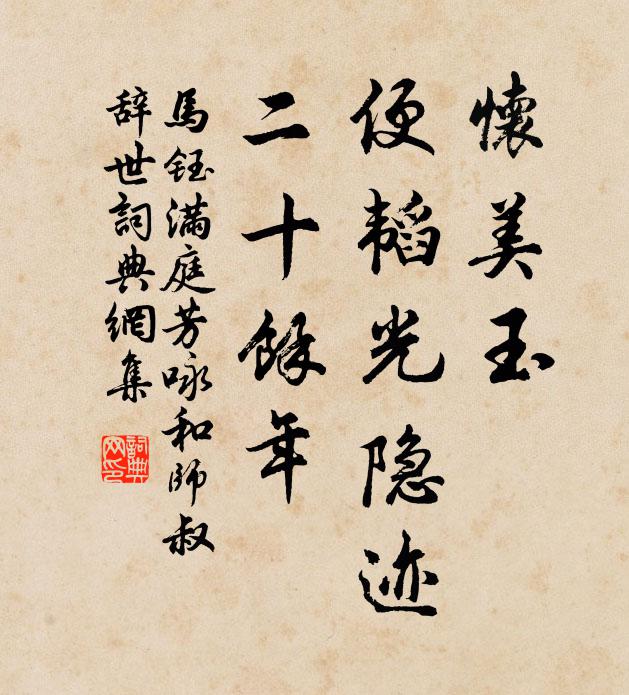 懷美玉
便韬光隐迹
二十餘年
馬鈺滿庭芳咏和師叔
辞世詞典網集
詞典网印